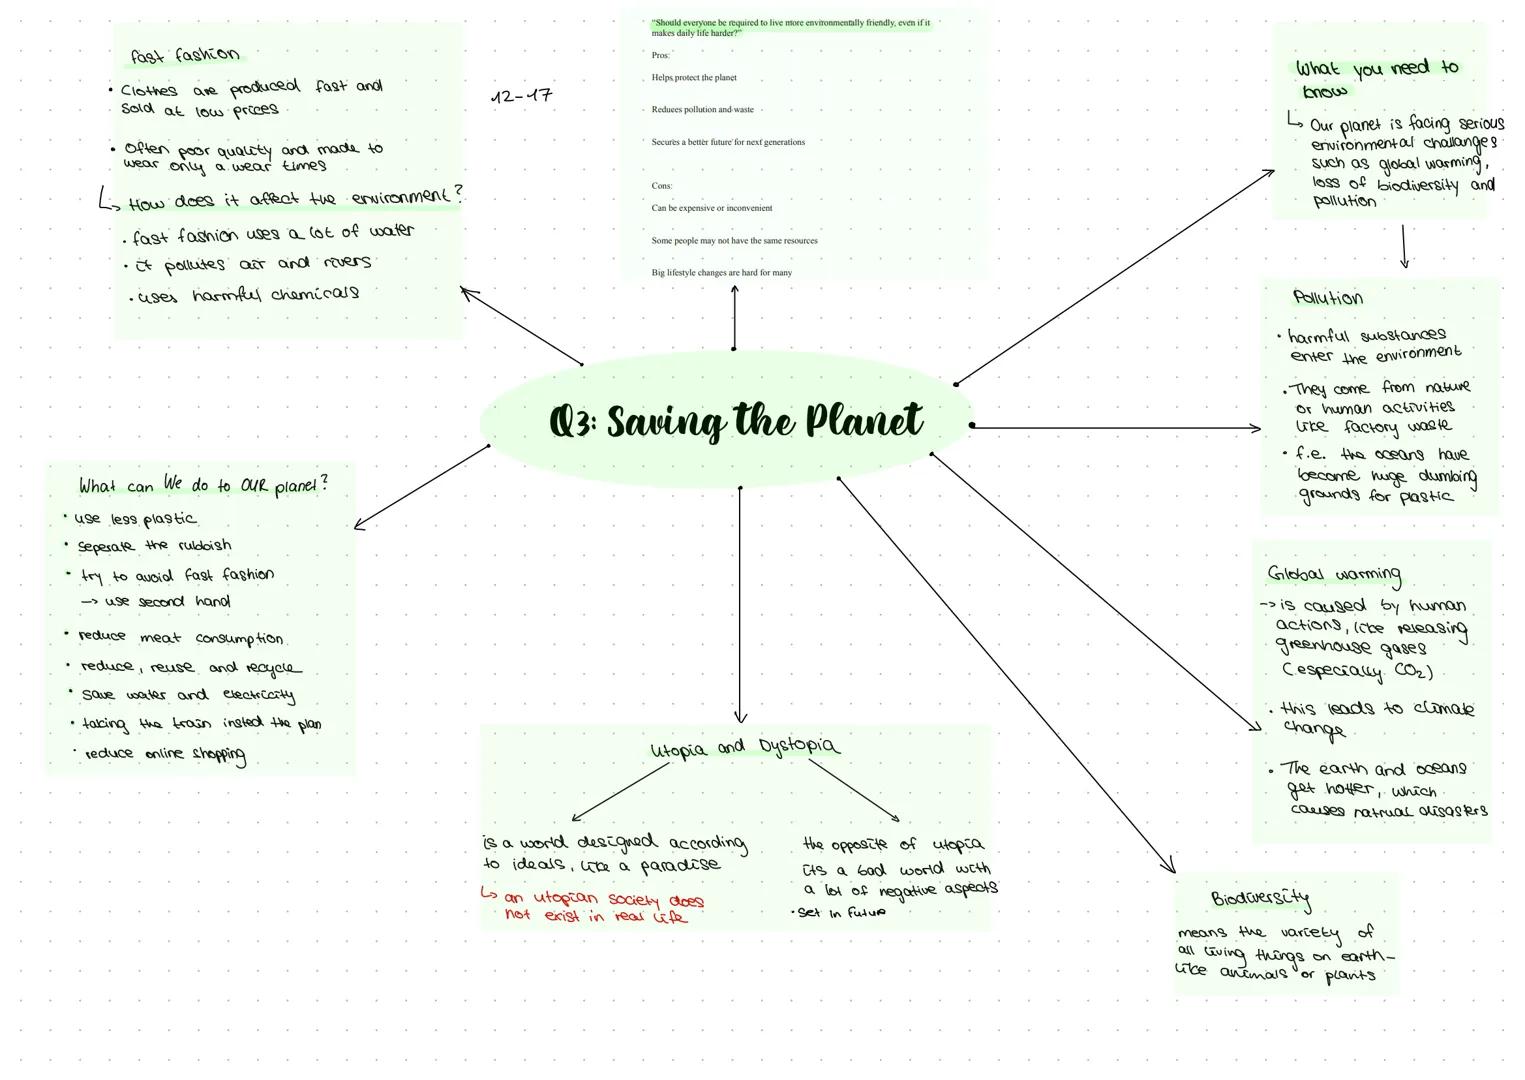 fast fashion
• Clothes are produced fast and
sold at low prices
• Often poor quality and made to
wear only a wear times
↳ How does it affect the environment?
• fast fashion uses a lot of water
• it pollutes air and rivers
• uses harmful chemicals
12-17
"Should everyone be required to live more environmentally friendly, even if it
makes daily life harder?"
Pros:
Helps protect the planet
Reduces pollution and waste
Secures a better future for next generations
Cons:
Can be expensive or inconvenient
Some people may not have the same resources
Big lifestyle changes are hard for many
What you need to
know
↳ Our planet is facing serious
environmental challanges
such as global warming,
loss of biodiversity and
pollution
Pollution
• harmful substances
enter the environment
• They come from nature
or human activities
like factory waste
• f.e. the oceans have
become huge dumbing
grounds for plastic
Q3: Saving the Planet
What can We do to OUR planet?
• use less plastic
• seperate the rubbish
• try to avoid fast fashion
-> use second hand
• reduce meat consumption
• reduce, reuse and recycle
• save water and electricity
• taking the train insted the plan
• reduce online shopping
Global warming
-> is caused by human
actions, like releasing
greenhouse gases
(especially CO₂)
• this leads to climate
change
• The earth and oceans
get hotter, which
causes natrual disasters
Utopia and Dystopia
is a world designed according
to ideals, like a paradise
↳ an utopian society does
not exist in real life
the opposite of utopia
its a bad world with
a lot of negative aspects
• set in future
Biodiversity
means the variety of
all living things on earth-
like animals or plants